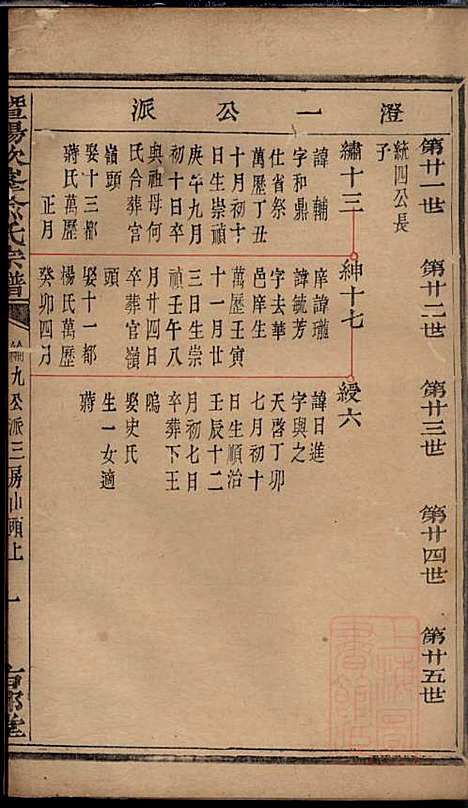 澄一公派
第廿一世
第廿二世
第廿三世
第廿四世
第廿五世
統四公長
子
繡十三
諱輔
字和鼎
仕省祭
萬歷丁丑
十月初十
日生崇禎
庚午九月
初十日卒
與祖母何
氏合葬官
嶺頭
娶十三都
蔣氏萬歷
正月
紳十七
庠諱瓏
諱毓芳
字去華
邑庠生
萬歷壬寅
十一月廿
三日生崇
禎壬午八
月廿四日
卒葬官嶺
頭
娶十一都
楊氏萬歷
癸卯四月
綬六
諱日進
字與之
天啓丁卯
七月初十
日生順治
壬辰十二
月初七日
卒葬下王
塢
娶史氏
生一女適
蔣
暨陽次峯俞氏宗譜
九公派三房山頭上
一